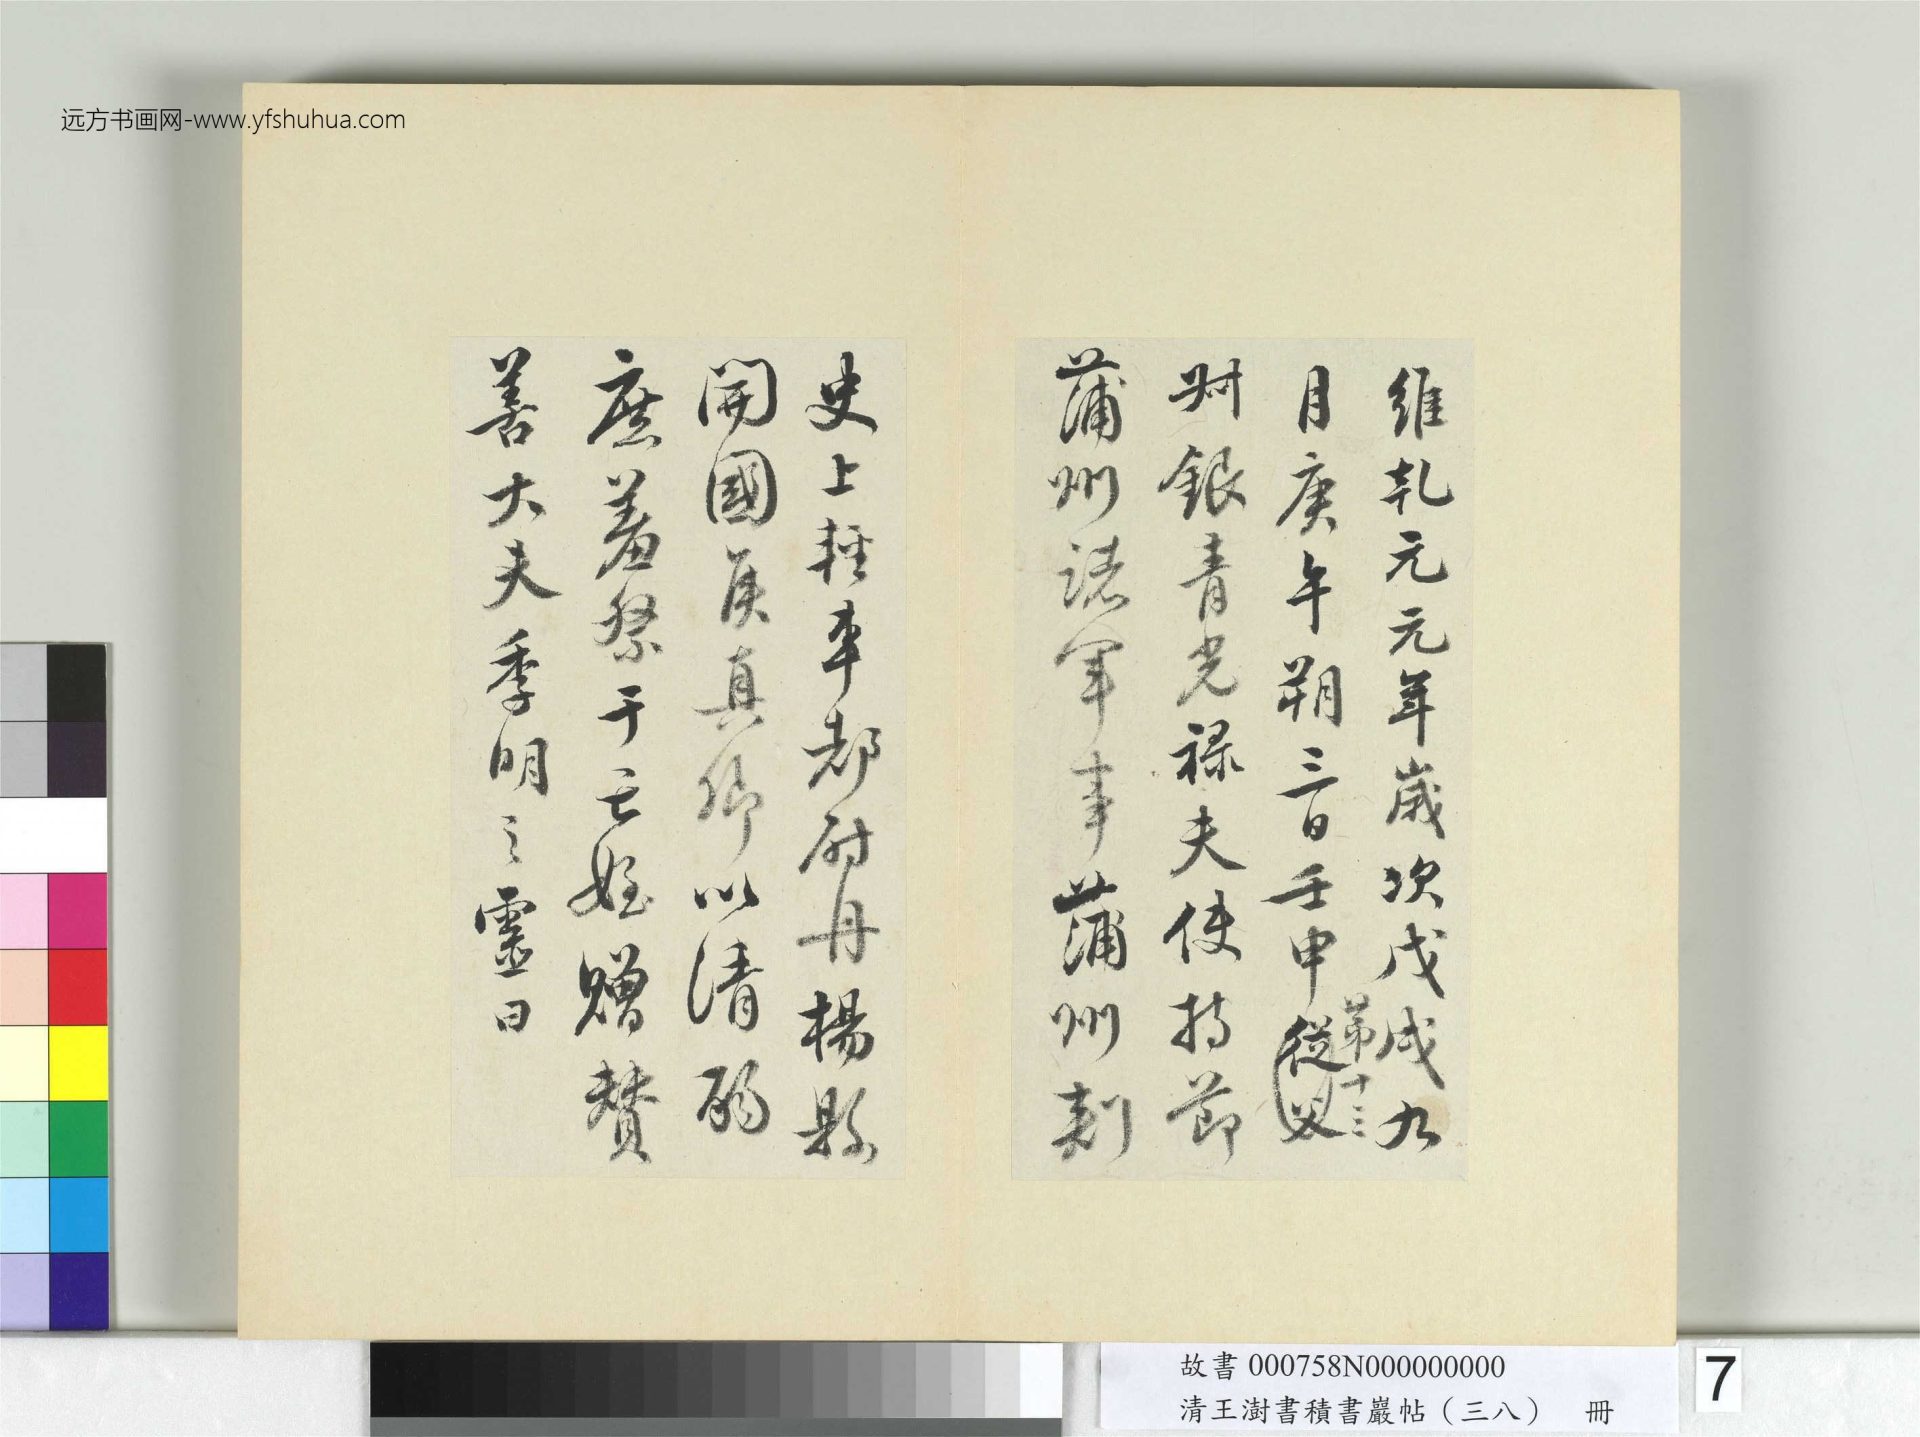 远方书画网-www.yfshuhua.com
維乹元元年歲次戊戌九
月庚午朔三日壬申從父
第十三
州銀青光禄夫使持節
蒲州諸軍事蒲州刺
史上輕車都尉丹楊縣
開國侯真卿以清酌
庶羞祭于亡姪贈贊
善大夫季明之靈曰
故書 000758N000000000
清王澍書積書巖帖（三八） 冊
7